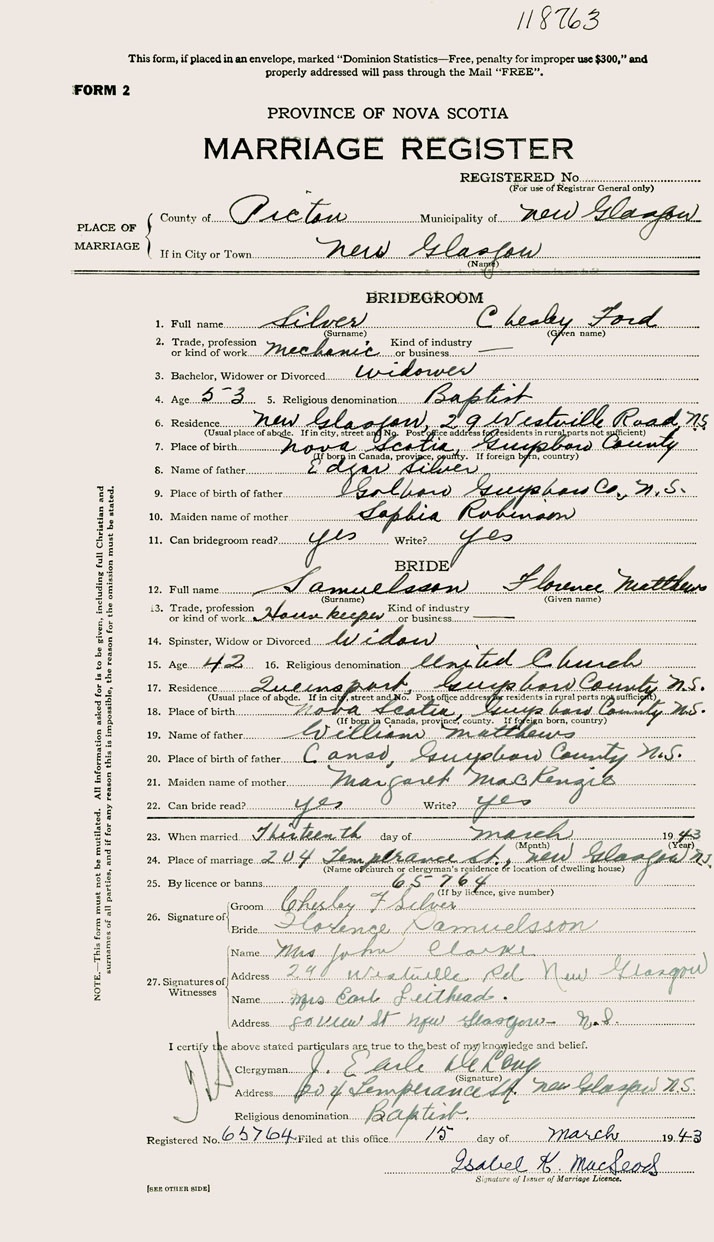 118763
This form, if placed in an envelope, marked "Dominion Statistics—Free, penalty for improper use $300," and
properly addressed will pass through the Mail "FREE".
FORM 2
PROVINCE OF NOVA SCOTIA
MARRIAGE REGISTER
REGISTERED No.
(For use of Registrar General only)
PLACE OF MARRIAGE
County of Pictou Municipality of New Glasgow
If in City or Town New Glasgow
(Name)
BRIDEGROOM
1. Full name Silver Chesley Ford
(Surname) (Given name)
2. Trade, profession or kind of work Mechanic Kind of industry or business —
3. Bachelor, Widower or Divorced Widower
4. Age 53 5. Religious denomination Baptist
6. Residence New Glasgow, 29 Westville Road, N.S.
(Usual place of abode. If in city, street and No. Post office address for residents in rural parts not sufficient)
7. Place of birth Nova Scotia, Guysboro County
(If born in Canada, province, county. If foreign born, country)
8. Name of father Edgar Silver
9. Place of birth of father Golboro Guysboro Co., N.S.
10. Maiden name of mother Sophia Robinson
11. Can bridegroom read? yes Write? yes
BRIDE
12. Full name Samuelsson Florence Matthews
(Surname) (Given name)
13. Trade, profession or kind of work Housekeeper Kind of industry or business —
14. Spinster, Widow or Divorced Widow
15. Age 42 16. Religious denomination United Church
17. Residence Queensport, Guysboro County N.S.
(Usual place of abode. If in city, street and No. Post office address for residents in rural parts not sufficient)
18. Place of birth Nova Scotia, Guysboro County N.S.
(If born in Canada, province, county. If foreign born, country)
19. Name of father William Matthews
20. Place of birth of father Canso, Guysboro County N.S.
21. Maiden name of mother Margaret MacKenzie
22. Can bride read? yes Write? yes
23. When married Thirteenth day of March 1943
(Month) (Year)
24. Place of marriage 204 Temperance St., New Glasgow N.S.
(Name of church or clergyman's residence or location of dwelling house)
25. By licence or banns 65764
(If by licence, give number)
26. Signature of Groom Chesley F Silver
Bride Florence Samuelsson
27. Signatures of Witnesses
Name Mrs John Clarke
Address 29 Westville Rd New Glasgow
Name Mrs Earl Leithead.
Address 80 View St New Glasgow - N.S.
I certify the above stated particulars are true to the best of my knowledge and belief.
Clergyman J. Earle DeLong
(Signature)
Address 204 Temperance St. New Glasgow N.S.
Religious denomination Baptist.
Registered No. 65764 Filed at this office 15 day of March 1943
Isabel K. MacLeod
Signature of Issuer of Marriage Licence.
[SEE OTHER SIDE]
NOTE.—This form must not be mutilated. All information asked for is to be given, including full Christian and
surnames of all parties, and if for any reason this is impossible, the reason for the omission must be stated.